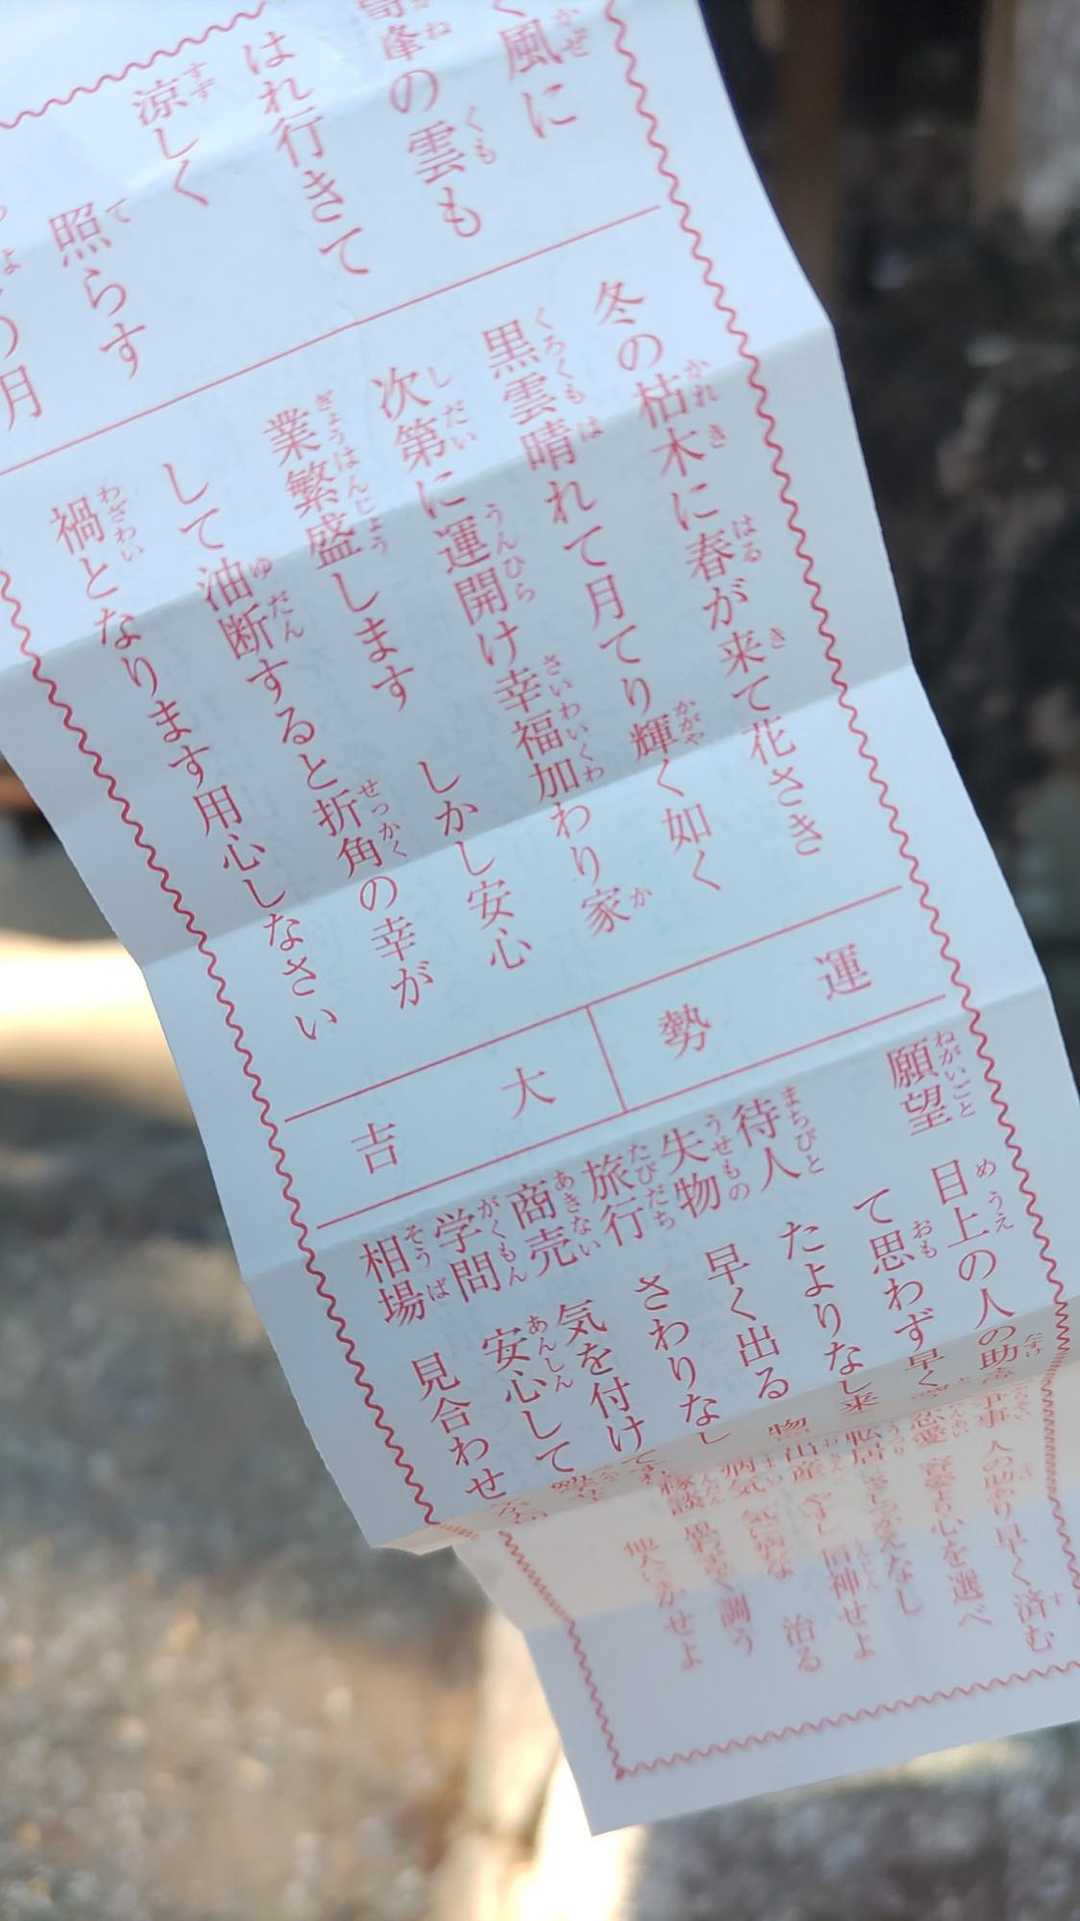 風に
峰の雲も
はれ行きて
涼しく
照らす
月
冬の枯木に春が来て花さき
黒雲晴れて月てり輝く如く
次第に運開け幸福加わり家
業繁盛します しかし安心
して油断すると折角の幸が
禍となります用心しなさい
運勢
大吉
願望 目上の人の助
て思わず早く
待人 たよりなし来
失物 早く出る 物
旅行 さわりなし
商売 気を付け
学問 安心して
相場 見合わせ
人の助あり早く済む
心を選べ
さしつかえなし
出産 やすし 信神せよ
病気 治る
縁談 調う